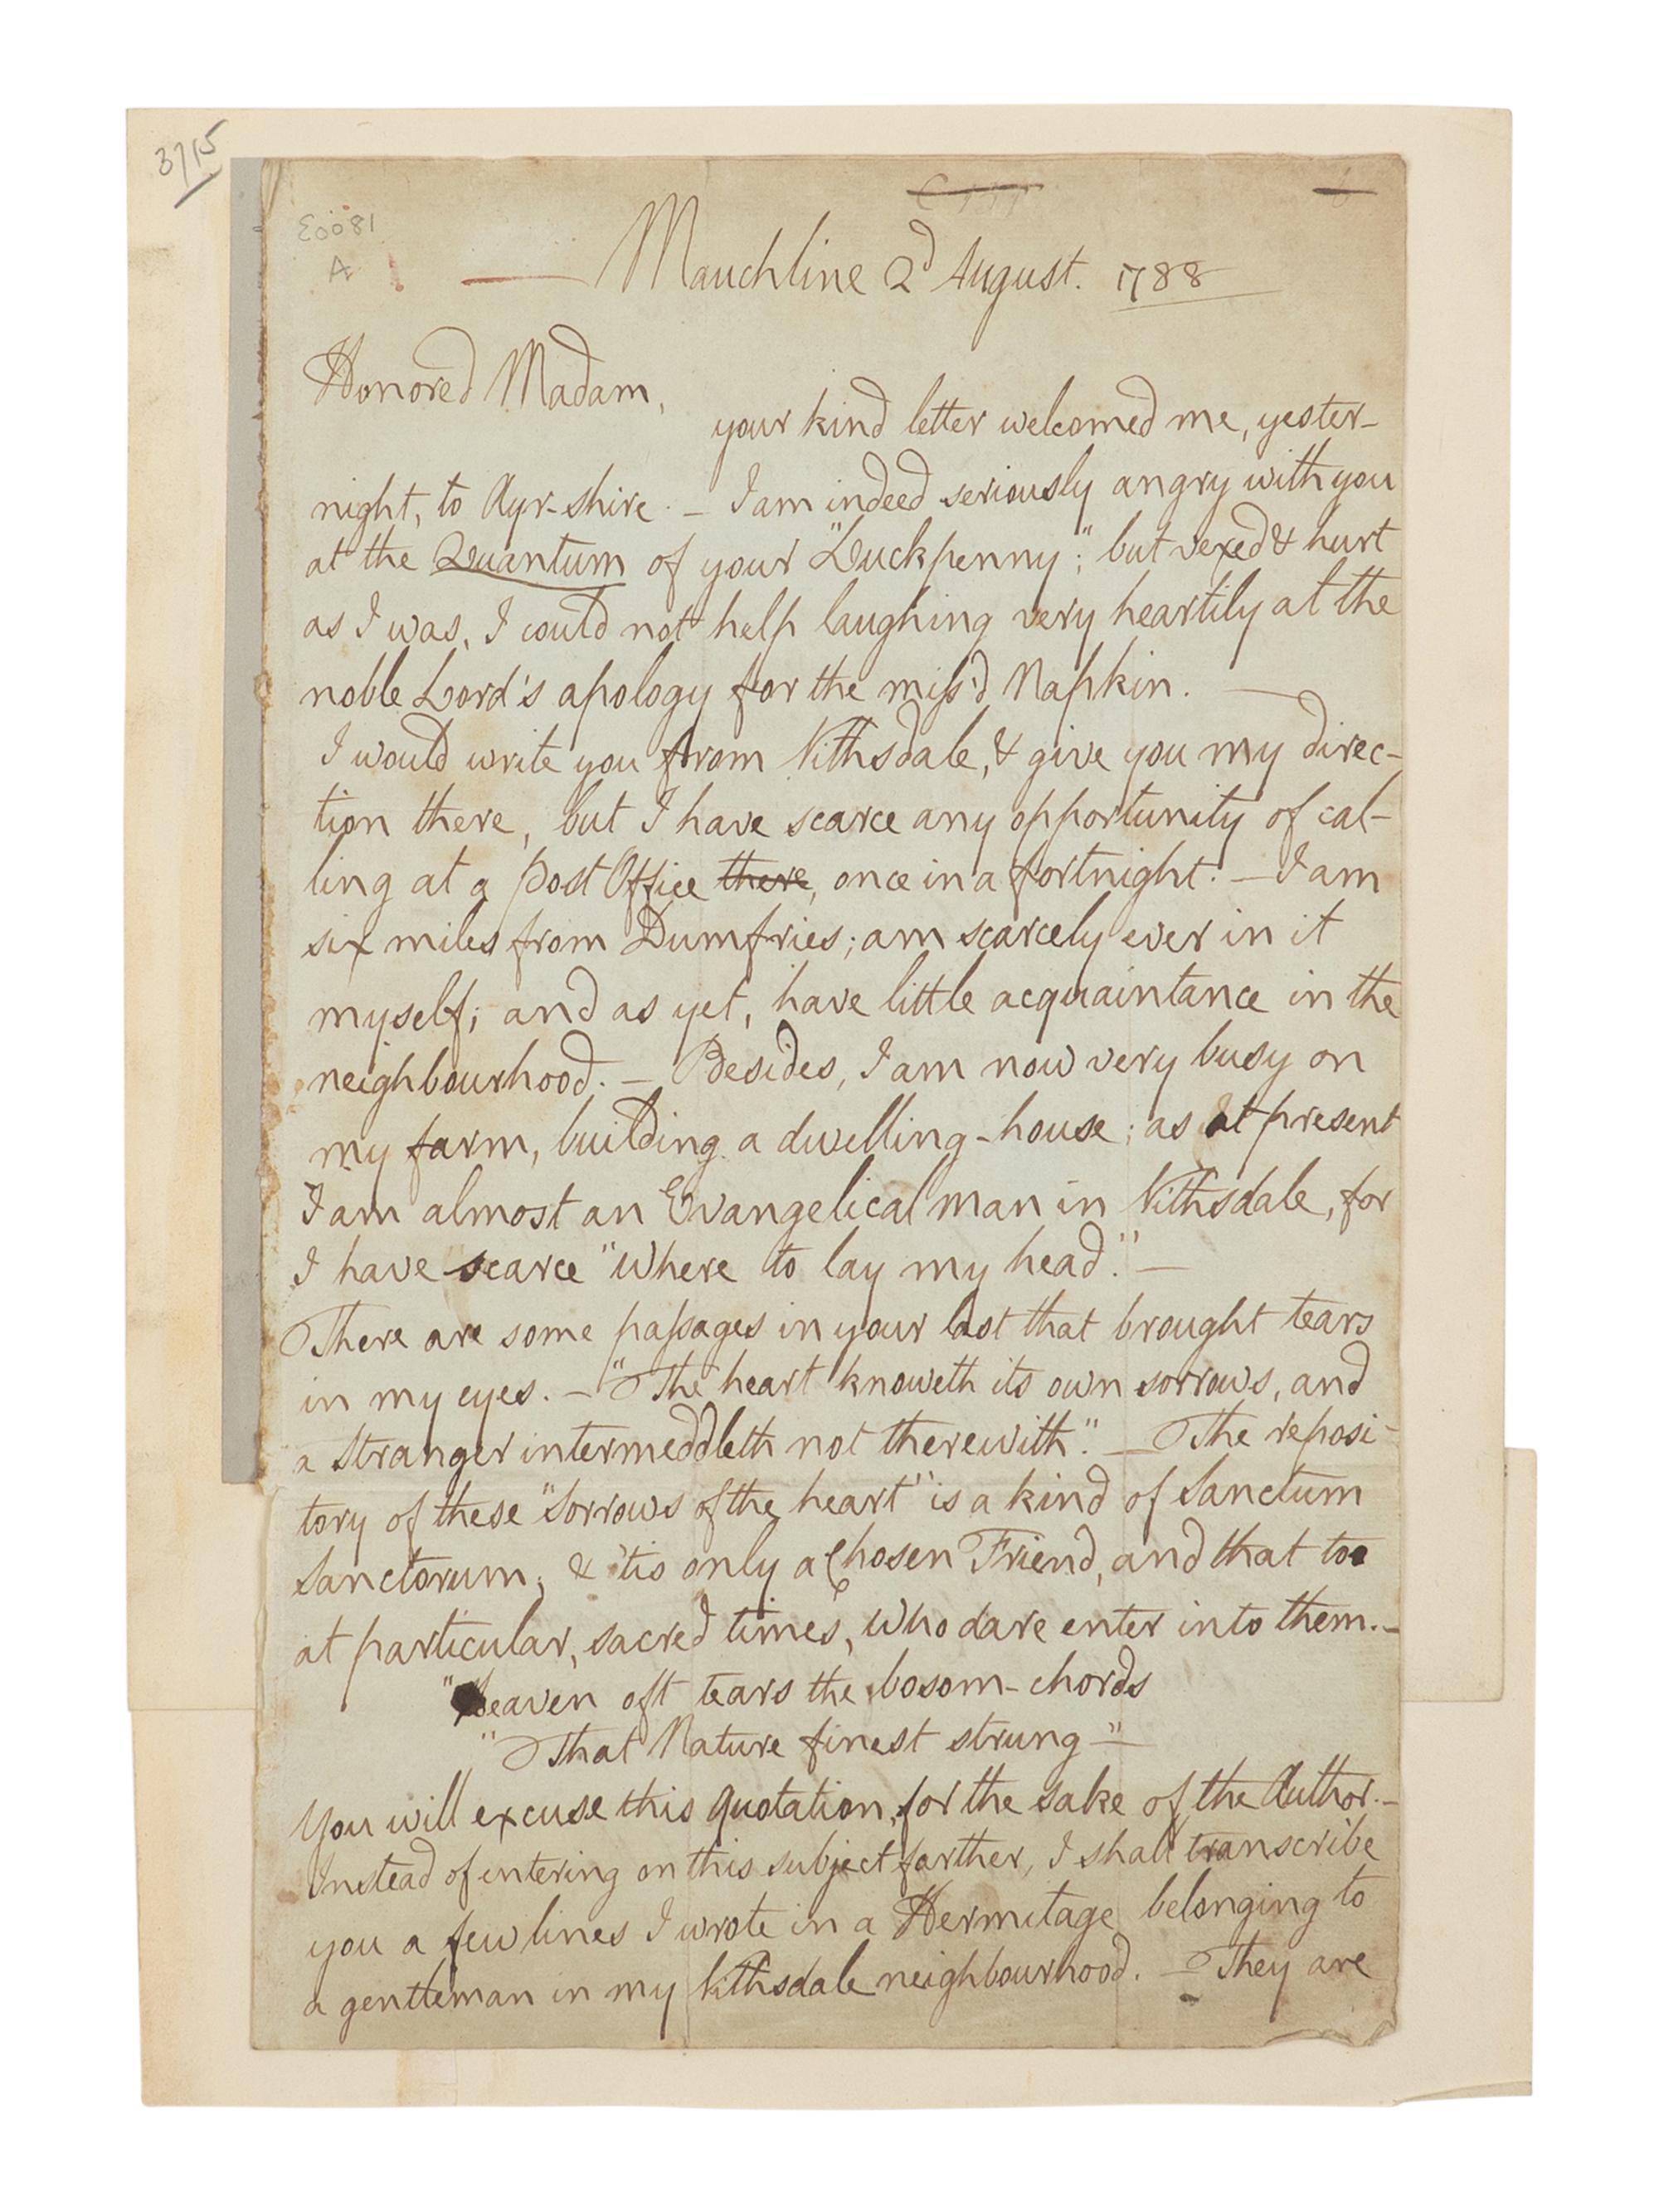 3715
E0081
A
Mauchline 2d August. 1788
Honored Madam,
your kind letter welcomed me, yester-
night, to Ayr-shire. — I am indeed seriously angry with you
at the Quantum of your "Luckpenny"; but vexed & hurt
as I was, I could not help laughing very heartily at the
noble Lord's apology for the miss'd Napkin. —
I would write you from Nithsdale, & give you my direc-
tion there, but I have scarce any opportunity of cal-
ling at a Post Office there, once in a fortnight. — I am
six miles from Dumfries; am scarcely ever in it
myself; and as yet, have little acquaintance in the
neighbourhood. — Besides, I am now very busy on
my farm, building a dwelling-house; as at present
I am almost an Evangelical man in Nithsdale, for
I have scarce "where to lay my head." —
There are some passages in your last that brought tears
in my eyes. — "The heart knoweth its own sorrows, and
a stranger intermeddleth not therewith." — The reposi-
tory of these "Sorrows of the heart" is a kind of Sanctum
Sanctorum; & 'tis only a Chosen Friend, and that too
at particular, sacred times, who dare enter into them. —
"Heaven oft tears the bosom-chords
"That Nature finest strung" —
You will excuse this quotation, for the sake of the Author. —
Instead of entering on this subject farther, I shall transcribe
you a few lines I wrote in a Hermitage belonging to
a gentleman in my Nithsdale neighbourhood. — They are